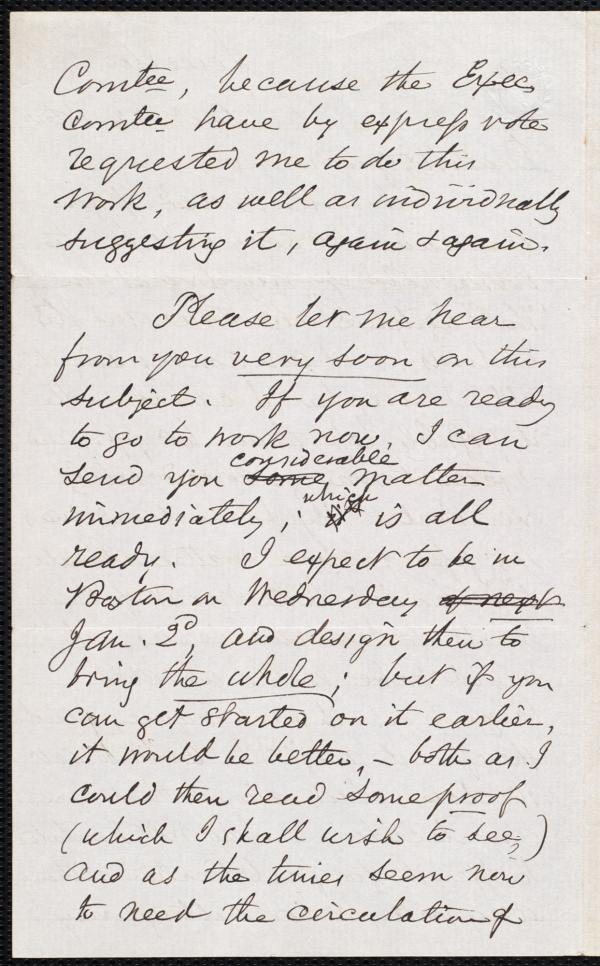 Comtee, because the Exec
Comtee have by express vote
requested me to do this
work, as well as individually
suggesting it, again & again.
Please let me hear
from you very soon on this
subject. If you are ready
to go to work now, I can
send you some considerable matter
immediately; which is all
ready. I expect to be in
Boston on Wednesday of next
Jan. 2d, and design then to
bring the whole; but if you
can get started on it earlier,
it would be better, – both as I
could then read some proof
(which I shall wish to see,)
and as the times seem now
to need the circulation of